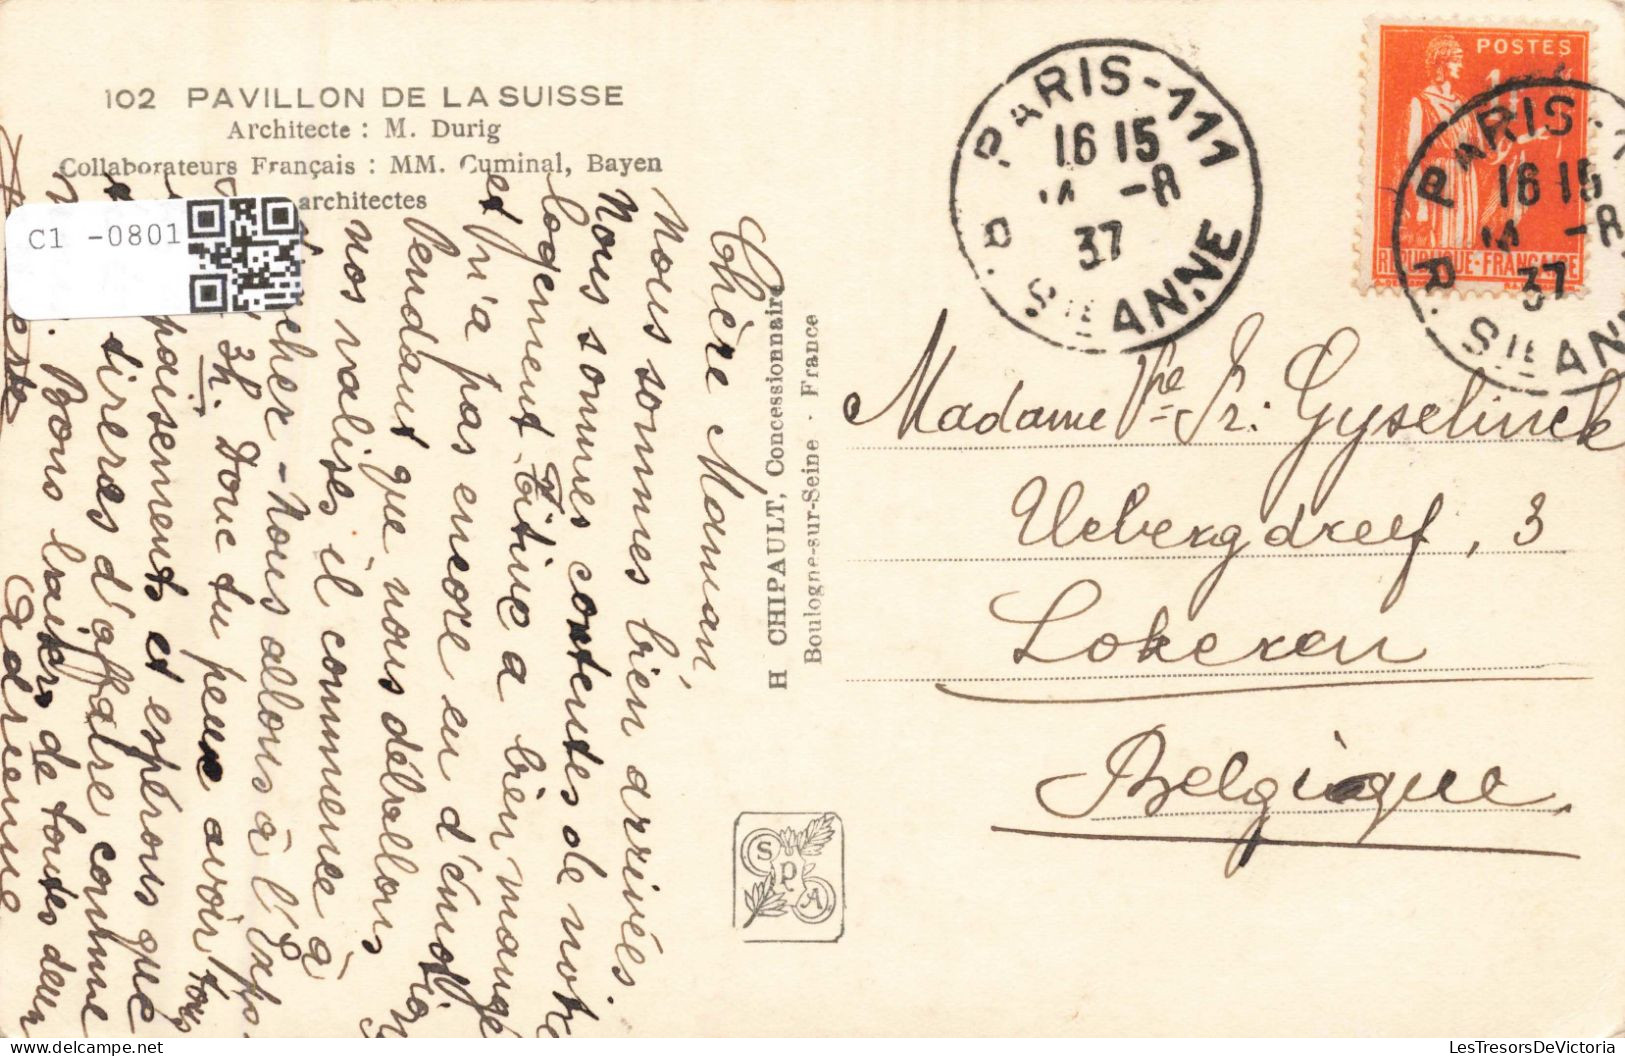 102 PAVILLON DE LA SUISSE
Architecte : M. Durig
Collaborateurs Français : MM. Cuminal, Bayen
architectes
C1 -0801
Chère Maman,
Nous sommes bien arrivées
Nous sommes contentes de notre
logement. Titine a bien mangé
et n'a pas encore eu d'émotion
Pendant que nous déballons
nos valises il commence à
Nous allons à l'Expo.
3h. Donc tu peux avoir tous
apaisements et espérons que
tireras d'affaire comme
Bons baisers de toutes deux
Adrienne
H CHIPAULT, Concessionnaire
Boulogne-sur-Seine - France
SPA
PARIS-111
16 15
14 -8
37
R. STE ANNE
POSTES
REPUBLIQUE-FRANÇAISE
PARIS-1
16 15
14 -8
37
R. STE ANN
Madame Vve Fr. Gyselinck
Uebergdreef, 3
Lokeren
Belgique
delcampe.net
LesTresorsDeVictoria